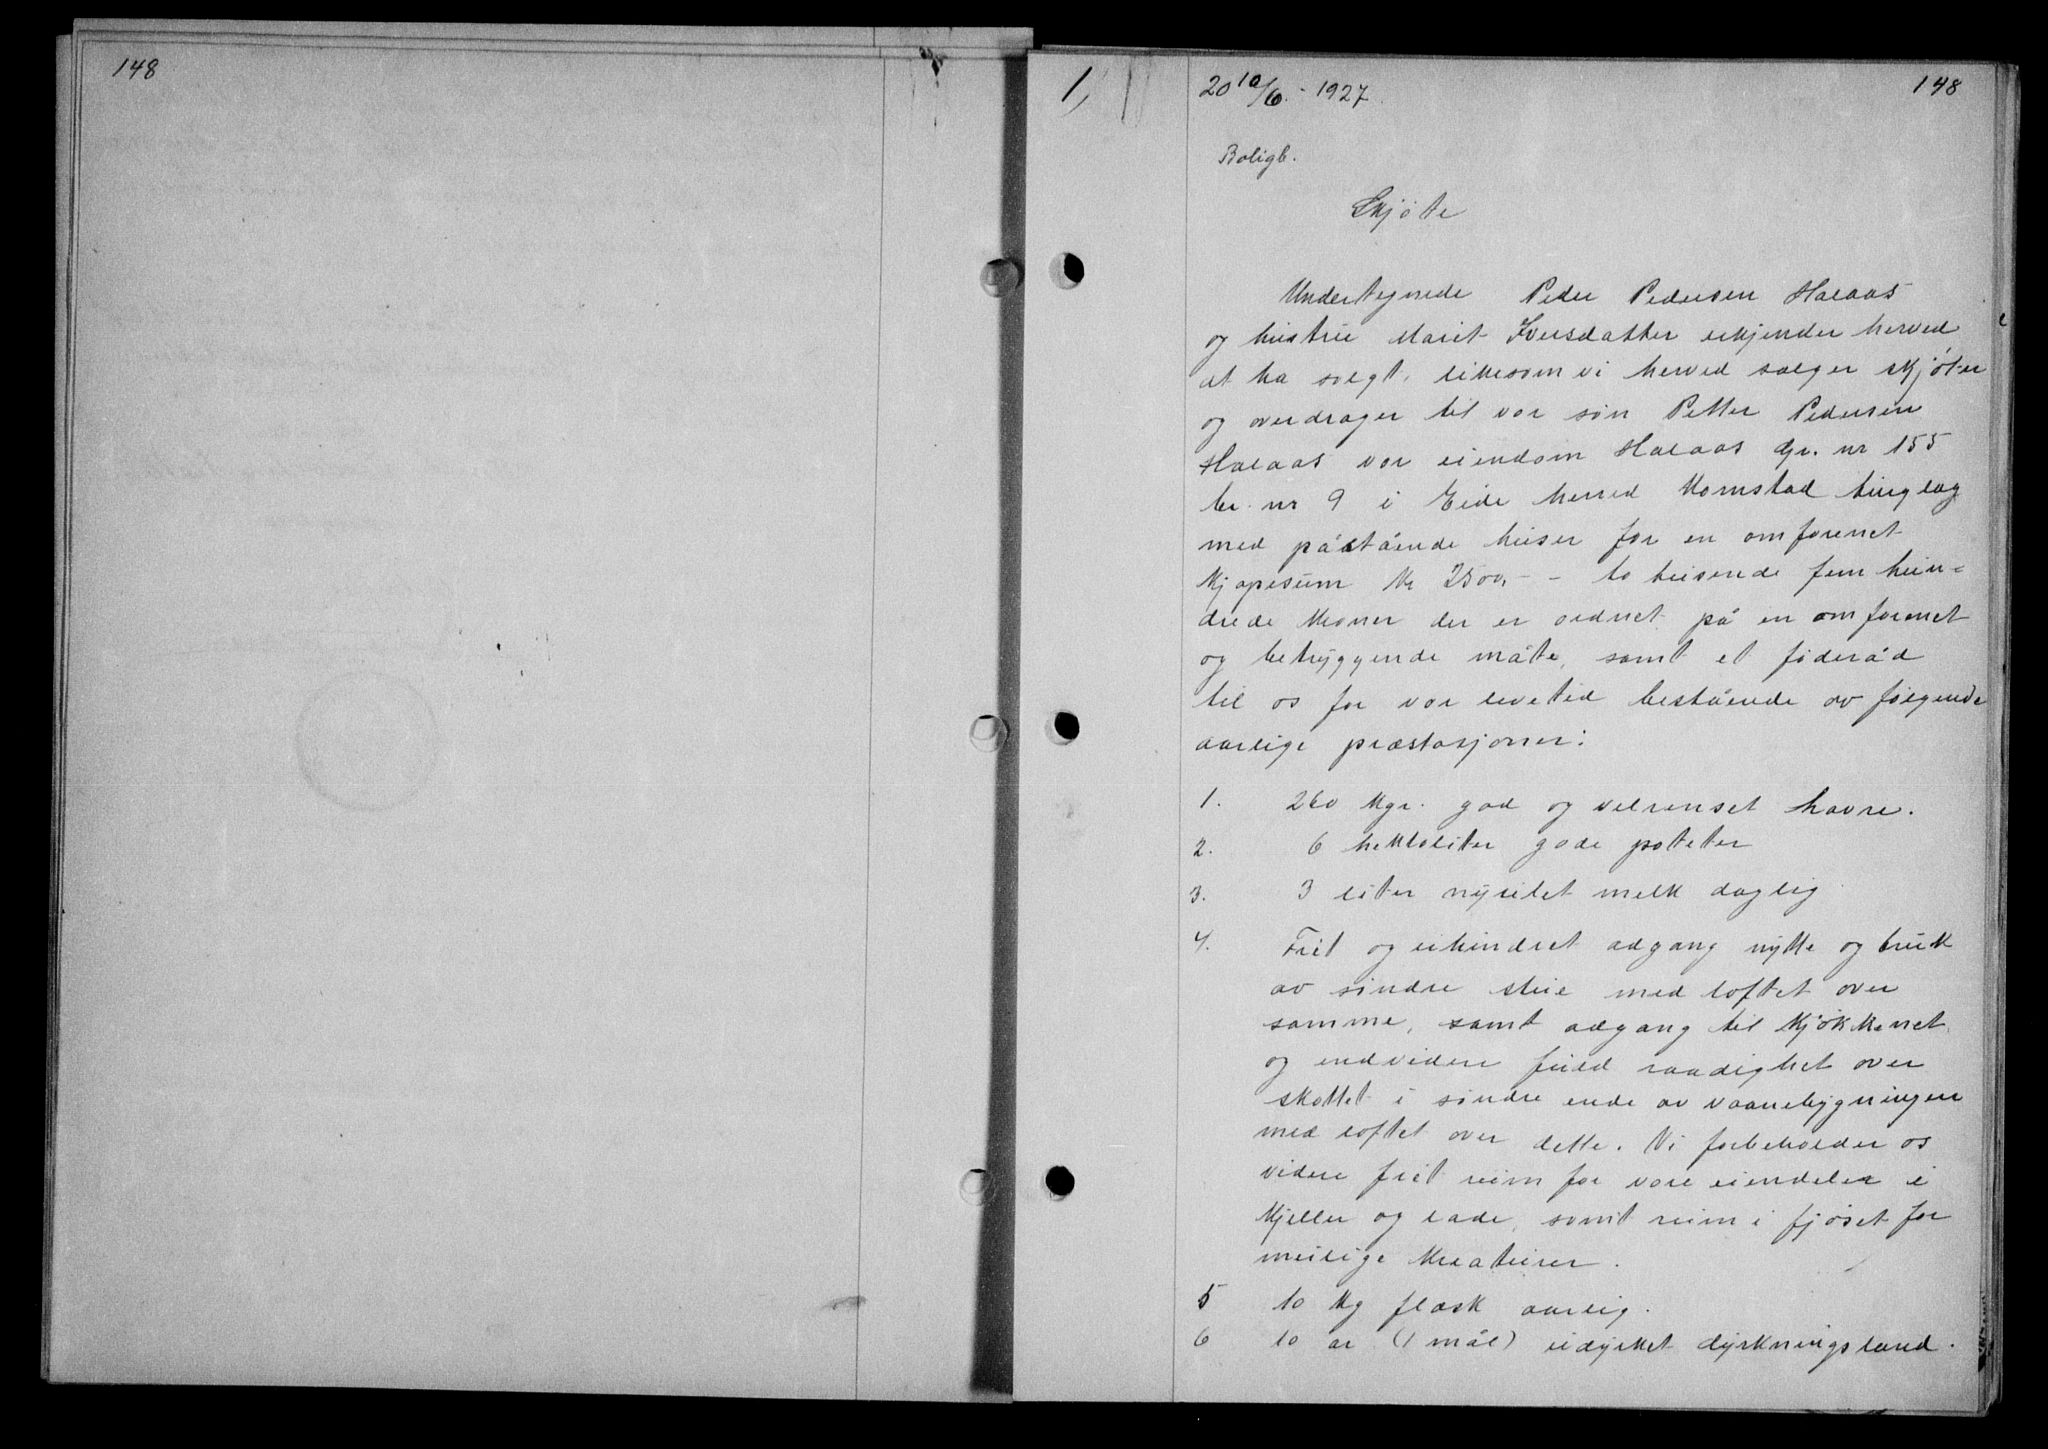 148
1,
20 10/6. - 1927.
148
Boligb.
Skjøte
Undertegnede Peder Pedersen Halaas
og hustru Marit Iversdatter erkjender herved
at ha solgt, likesom vi herved sælger skjøter
og overdrager til vor søn Petter Pedersen
Halaas vor eiendom Halaas gr. nr 155
br. nr 9 i Eide herred Kornstad tinglag
med påstående huser for en omforenet
kjøpesum kr 2500,- - to tusende fem hun-
drede kroner der er ordnet på en omforenet
og betryggende måte, samt et føderåd
til os for vor levetid bestående av følgende
aarlige præstasjoner:
1. 260 kgr. god og velrenset havre.
2. 6 hektoliter gode poteter
3. 3 liter nysilet melk daglig
4. Frit og uhindret adgang nytte og bruk
av søndre stue med loftet over
samme, samt adgang til kjøkkenet
og endvidere fuld raadighet over
skottet i søndre ende av vaanebygningen
med loftet over dette. Vi forbeholder os
videre frit rum for vore eiendeler i
kjeller og lade, samt rum i fjøset for
mulige kreaturer.
5 10 kg flæsk aarlig.
6 10 ar (1 mål) udyrket dyrkningsland.